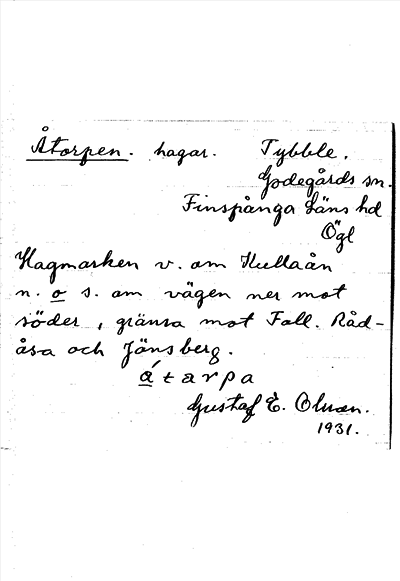 Åtorpen. hagar. Tybble.
Godegårds sn.
Finspånga Läns hd
Ögl
Hagmarken v. om Hullaån
n. o s. om vägen ner mot
söder, gränsa mot Fall. Råd-
åsa och Jänsberg.
a´tarpa
Gustaf E. Olsson.
1931.